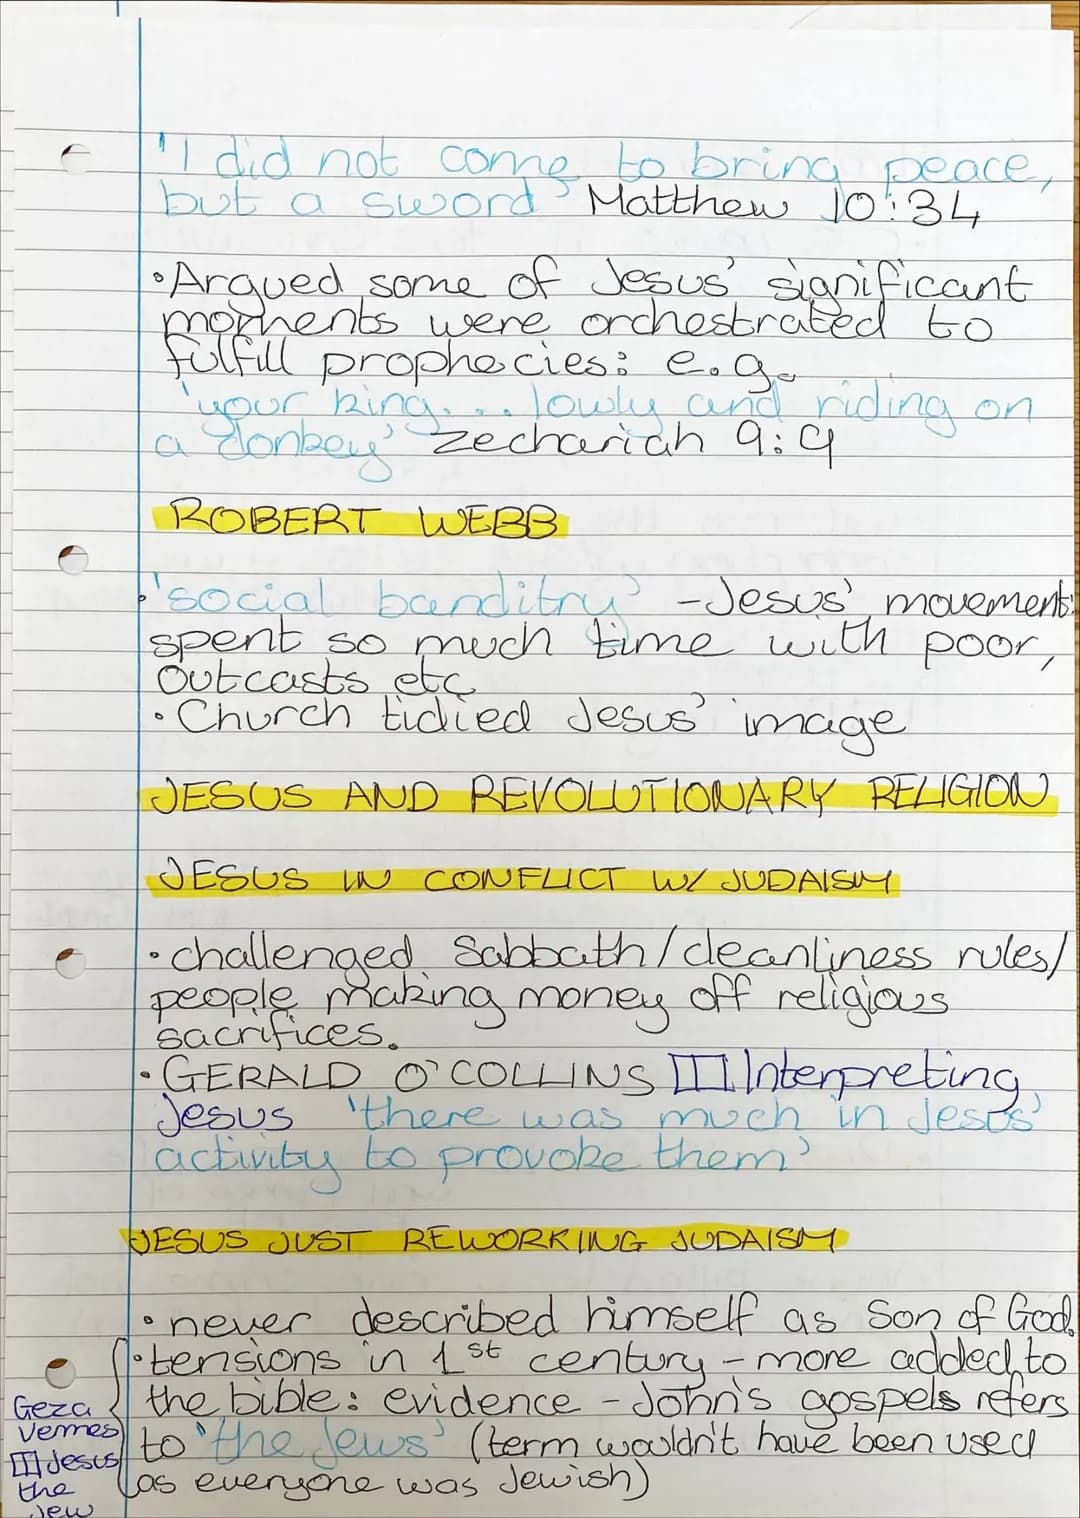 'I did not come to bring peace,
but a sword' Matthew 10:34
•Argued some of Jesus' significant
moments were orchestrated to
fulfill prophecies: e.g.
'your king... lowly and riding on
a donkey' Zechariah 9:9
ROBERT WEBB
•'social banditry' - Jesus' movement:
spent so much time with poor,
outcasts etc
•Church tidied Jesus' image
JESUS AND REVOLUTIONARY RELIGION
JESUS IN CONFLICT W/ JUDAISM
•challenged Sabbath/cleanliness rules/
people making money off religious
sacrifices.
•GERALD O'COLLINS Interpreting
Jesus 'there was much in Jesus'
activity to provoke them'
JESUS JUST REWORKING JUDAISM
•never described himself as Son of God.
•tensions in 1st century - more added to
the bible: evidence - John's gospels refers
to 'the Jews' (term wouldn't have been used
as everyone was Jewish)
Geza
Vermes
Jesus
the
Jew